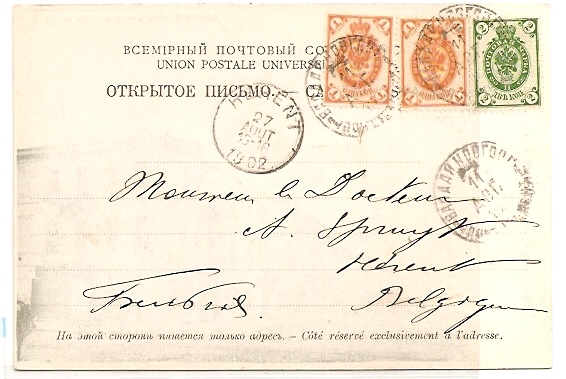 ВСЕМІРНЫЙ ПОЧТОВЫЙ СО
UNION POSTALE UNIVERSEL
ОТКРЫТОЕ ПИСЬМО. — CA
1 1 1 1 2 2
HERENT
27
AOUT
1902
11
АВГ
Monsieur le Docteur
A. Spruyt
Herent
Бельгія Belgique
На этой сторонѣ пишется только адресъ. — Côté réservé exclusivement à l'adresse.